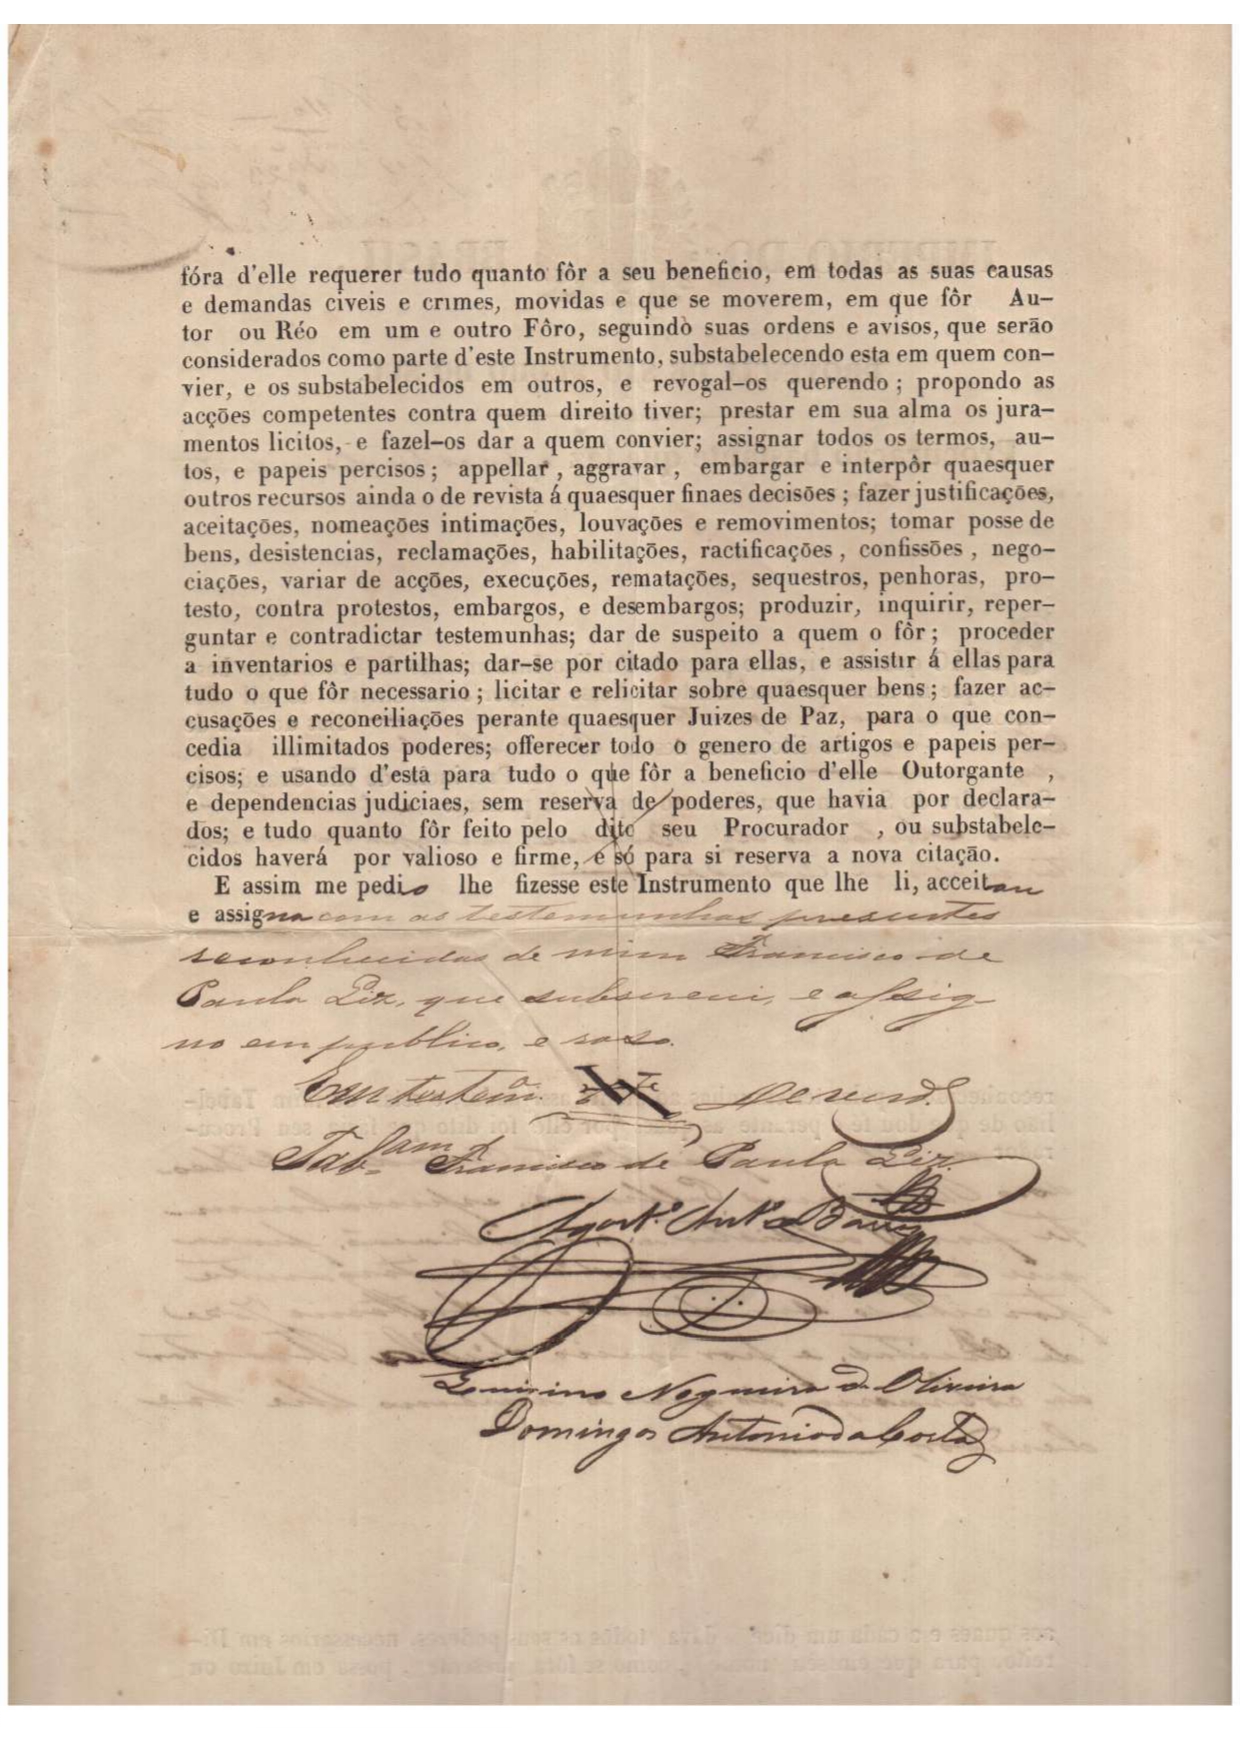 fóra d'elle requerer tudo quanto fôr a seu beneficio, em todas as suas causas
e demandas civeis e crimes, movidas e que se moverem, em que fôr Au-
tor ou Réo em um e outro Fôro, seguindo suas ordens e avisos, que serão
considerados como parte d'este Instrumento, substabelecendo esta em quem con-
vier, e os substabelecidos em outros, e revogal-os querendo; propondo as
acções competentes contra quem direito tiver; prestar em sua alma os jura-
mentos licitos, e fazel-os dar a quem convier; assignar todos os termos, au-
tos, e papeis percisos; appellar, aggravar, embargar e interpôr quaesquer
outros recursos ainda o de revista á quaesquer finaes decisões; fazer justificações,
aceitações, nomeações intimações, louvações e removimentos; tomar posse de
bens, desistencias, reclamações, habilitações, ractificações, confissões, nego-
ciações, variar de acções, execuções, rematações, sequestros, penhoras, pro-
testo, contra protestos, embargos, e desembargos; produzir, inquirir, reper-
guntar e contradictar testemunhas; dar de suspeito a quem o fôr; proceder
a inventarios e partilhas; dar-se por citado para ellas, e assistir á ellas para
tudo o que fôr necessario; licitar e relicitar sobre quaesquer bens; fazer ac-
cusações e reconeiliações perante quaesquer Juizes de Paz, para o que con-
cedia illimitados poderes; offerecer todo o genero de artigos e papeis per-
cisos; e usando d'esta para tudo o que fôr a beneficio d'elle Outorgante ,
e dependencias judiciaes, sem reserva de poderes, que havia por declara-
dos; e tudo quanto fôr feito pelo dito seu Procurador , ou substabele-
cidos haverá por valioso e firme, e só para si reserva a nova citação.
E assim me pedio lhe fizesse este Instrumento que lhe li, acceitou
e assigna com as testemunhas presentes
reconhecidas de mim Francisco de
Paula Liz, que subscrevi, e assig-
no em publico, e raso.
Em testem.º de verd.e
Tab.am Francisco de Paula Liz
Agost.º Ant.º de
Nogueira de Oliveira
Domingos Antonio da Costa